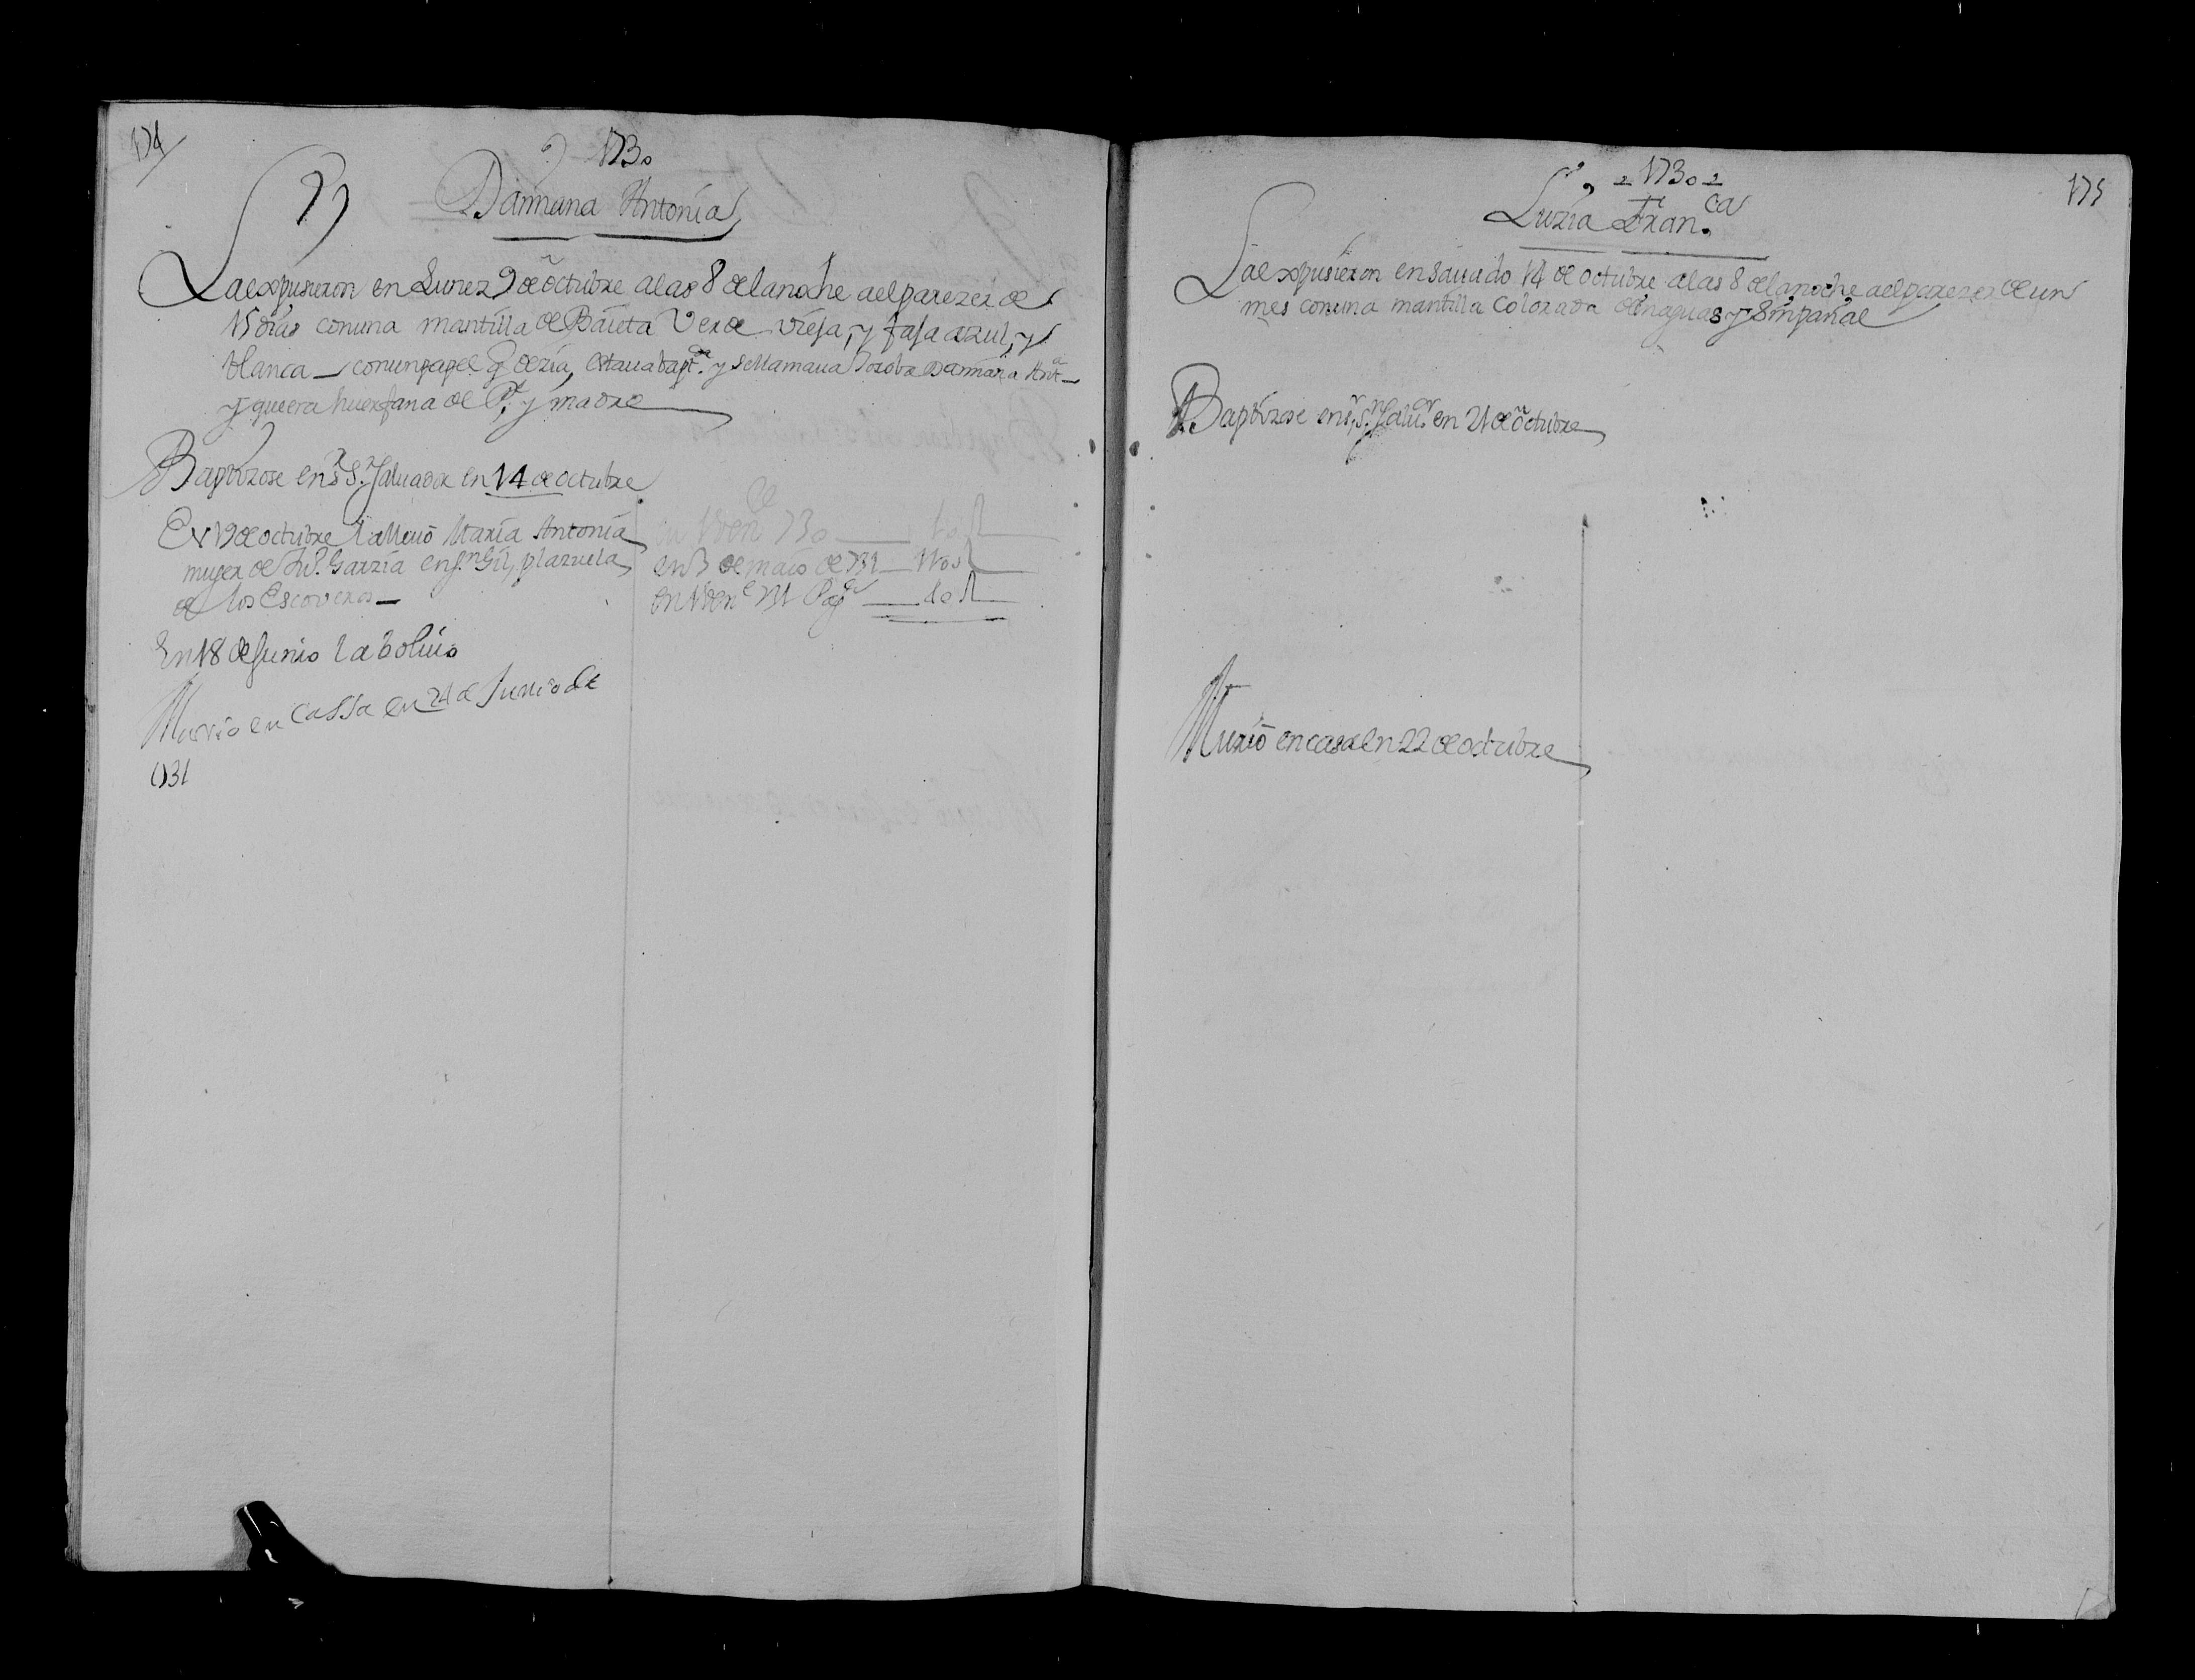 174
1730
Damiana Antonia
La expusieron en Lunez 9 de octubre alas 8 delanoche aelparezer de
15 dias conuna mantilla de Baieta Verde vieja, y faja azul, y
blanca conunpapel q dezia, estaua bapt.da y sellamaua Damiana Ant.a
y queera huerfana de P.e y madre
Baptizose en s.r S. Saluador en 14 de octubre
En 19 de octubre la lleuó Maria Antonia
muger de Ju.o Garzia en S.n Gil, plazuela
de los Escoveros
en 3 de maio de 731
En 18 de Junio la boluio
Murio en Cassa en 24 de Junio de
1731
175
1730
Luzia Fran.ca
La expusieron en Sauado 14 de octubre alas 8 delanoche aelparezer de un
mes conuna mantilla Colorada de enaguas y sin pañal
Baptizose en s.r S.n Salu.or en 21 de octubre
Murió en casa en 22 de octubre